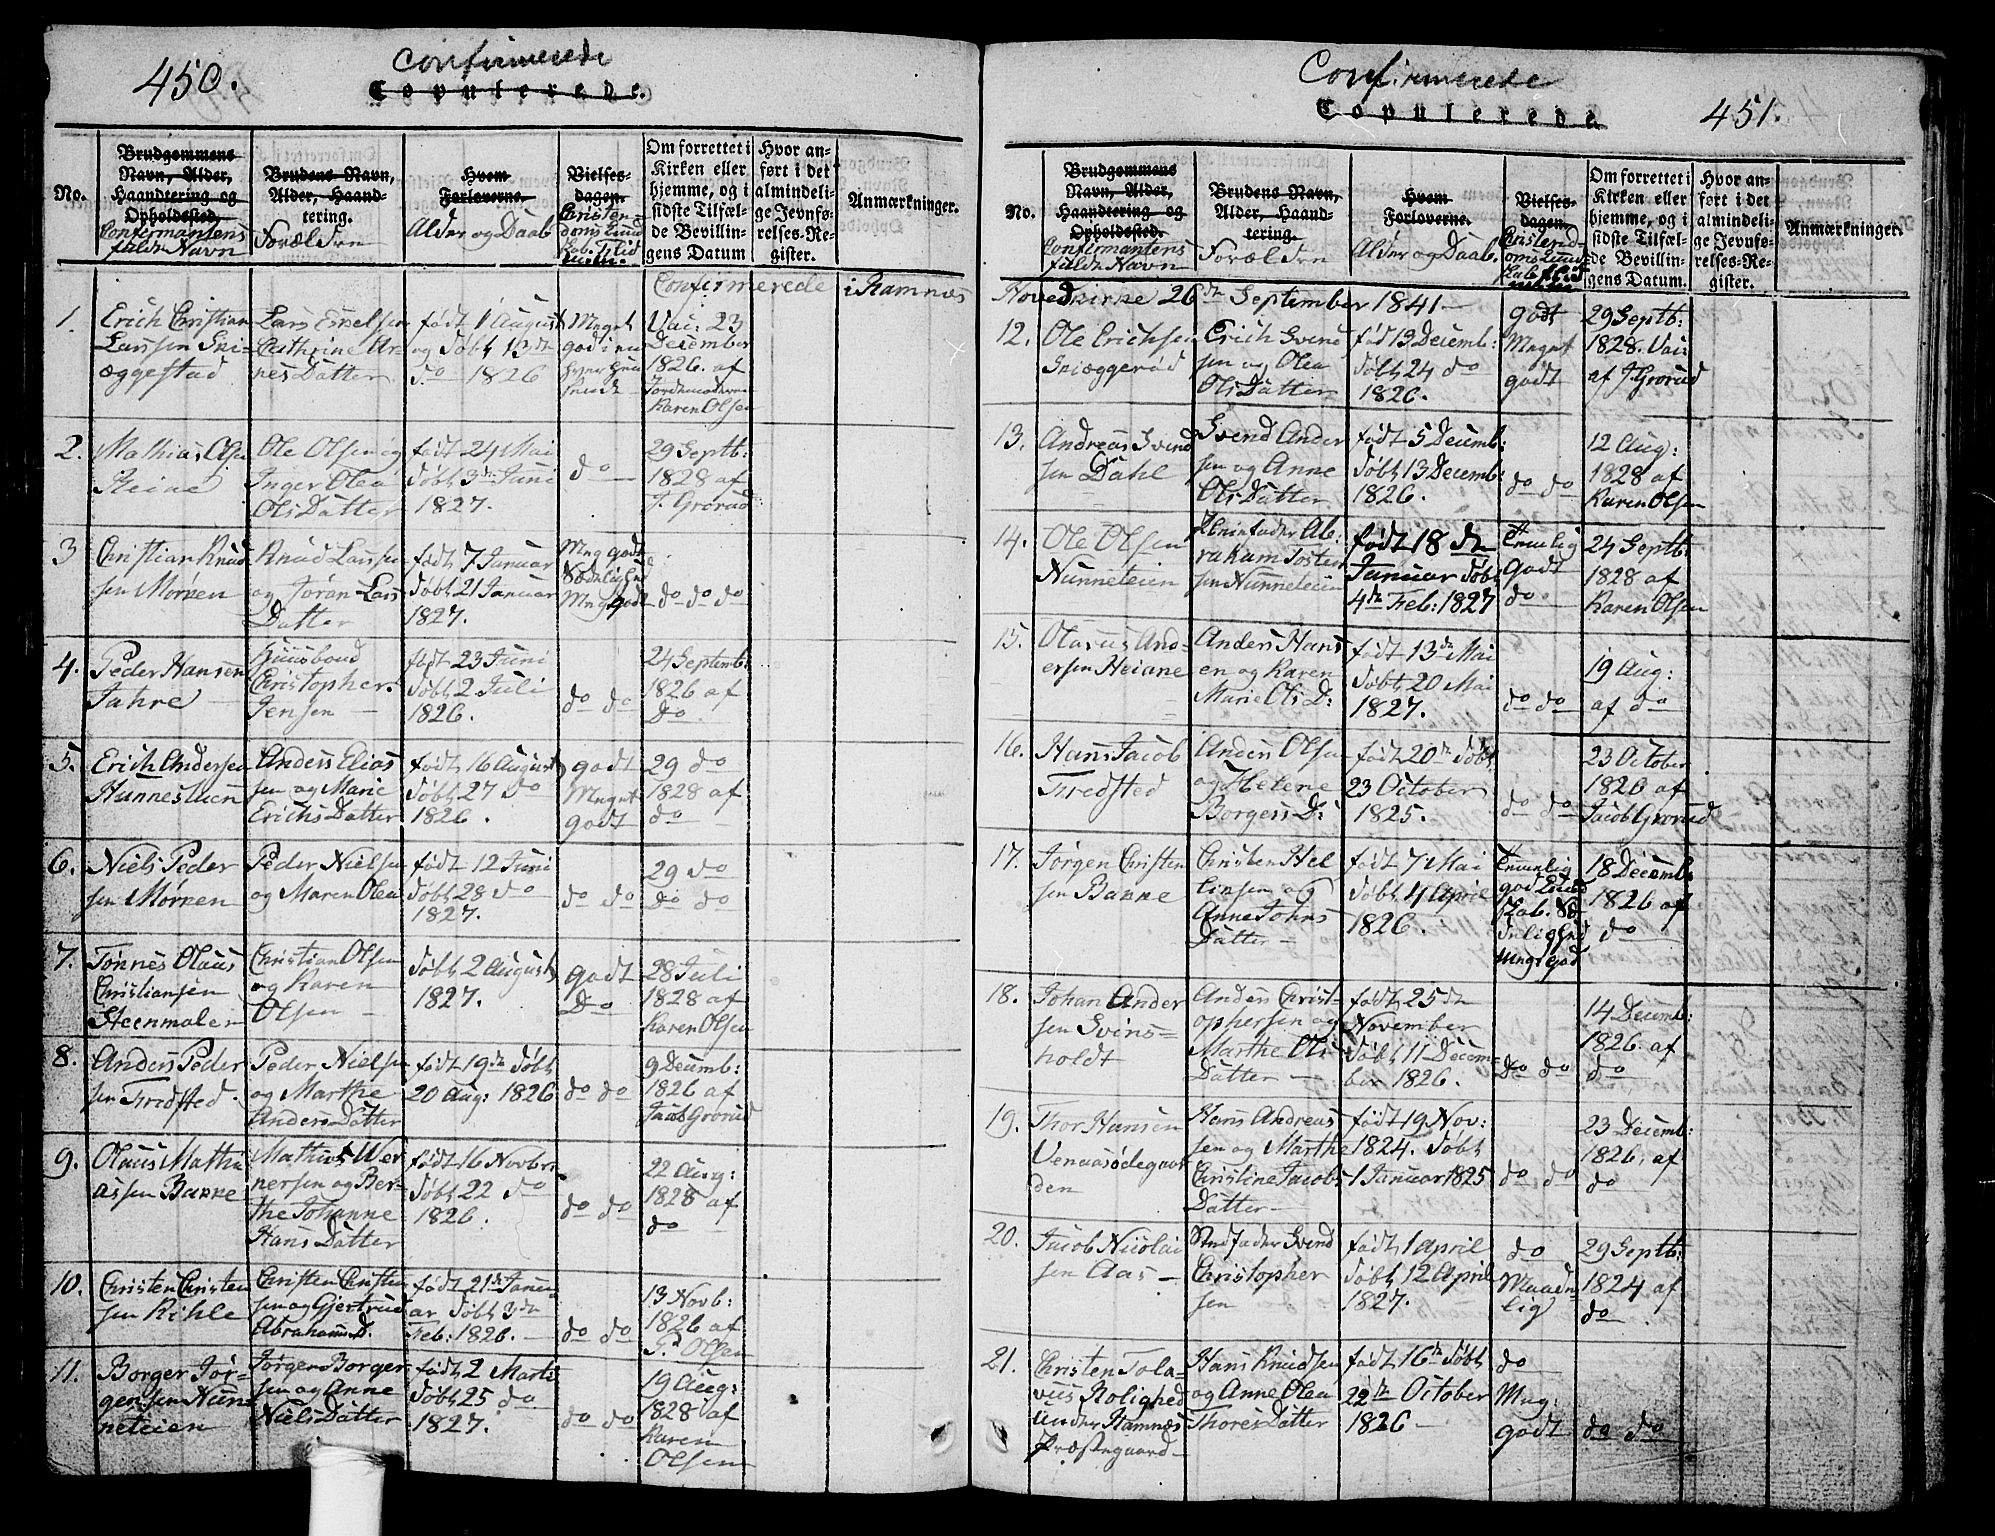 450.
Confirmerede
Copulerede.
No.
Brudgommens
Navn, Alder,
Haandtering og
Opholdssted.
Confirmantens
fulde Navn
Brudens Navn,
Alder, Haand-
tering.
Forældren
Hvem
Forloverne.
Alder og Daab
Vielses-
dagen.
Christen
doms Kund
skab. Flid
Om forrettet i
Kirken eller
hjemme, og i
sidste Tilfæl-
de Bevillin-
gens Datum
Hvor an-
ført i det
almindeli-
ge Jevnfø-
relses-Re-
gister.
Anmærkninger.
Confirmerede i Ramnæs
1.
Erich Christian
Larssen Ski-
æggestad
Lars Eskelsen
Cathrine Ar-
nes Datter
født 1 August
og døbt 13 de
do 1826
Meget
god i en
Vac: 23
December
1826. af
Jordemoderen
Karen Olsen
2.
Mathias Olsen
Reine
Ole Olsen og
Inger Olea
Ols Datter
født 24 Mai
døbt 3de Juni
1827.
do
29 Septb:
1828 af
J. Grorud
3
Christian Knud
sen Mørken
Knud Larssen
og Jøran Lars
Datter
født 7 Januar
døbt 21 Januar
1827.
Meg godt
Sædelighed
Meg godt
do do do
4.
Peder Hansen
Jahre
Huusbond
Christopher
Jensen
født 23 Juni
døbt 2 Juli
1826.
do do
24 Septemb:
1826 af
Do
5.
Erich Andersen
Hunnestuen
Anders Elias
sen og Marie
Erichs Datter
født 16 August
døbt 27 do
1826.
godt
Meget
godt
29 do
1828 af
do
6.
Niels Peder
sen Mørken
Peder Nielsen
og Maren Olea
født 12 Juni
døbt 28 do
1827.
do do
29 do
do do
7.
Tønnes Olaus
Christiansen
Steenmaler
Christian Olsen
og Karen
Olsen
døbt 2 August
1827.
godt
Do
28 Juli
1828 af
Karen Olsen
8.
Anders Peder
sen Fredsted.
Peder Nielsen
og Marthe
Anders Datter
født 19de døbt
20 Aug: 1826
do do
9 Decemb:
1826 af
Jacob Grorud
9.
Olaus Mathi
assen Bakke
Mathias Wer
nersen og Ber-
the Johanne
Hans Datter
født 16 Novbr:
døbt 22 do
1826.
do do
22 Aug:
1828 af
do
10.
Christen Christen
sen Kihle
Christen Christen
sen og Gjertrud
Abrahams D.
født 21de Janu-
ar døbt 3de
Feb: 1826.
do do
13 Novb:
1826 af
P. Olsen
11.
Borger Jør-
gensen Nun
neteien
Jørgen Borger-
sen og Anne
Niels Datter
født 2 Marts
døbt 25 do
1827.
do do
19 Aug:
1828 af
Karen
Olsen
Confirmerede
Copulerede.
451.
No.
Brudgommens
Navn, Alder,
Haandtering og
Opholdssted.
Confirmantens
fulde Navn
Brudens Navn,
Alder, Haand-
tering.
Forældren
Hvem
Forloverne.
Alder og Daab.
Vielses-
dagen.
Christend-
oms Kund
skab Flid
Om forrettet i
Kirken eller
hjemme, og i
sidste Tilfæl-
de Bevillin-
gens Datum.
Hvor an-
ført i det
almindeli-
ge Jevnfø-
relses-Re-
gister.
Anmærkninger.
Hovedkirke 26de September 1841.
12.
Ole Erichsen
Skiæggerød
Erich Svend
sen og Olea
Ols Datter
fød 19 Decemb:
døbt 24 do
1826.
godt
Meget
godt
29 Septb:
1828. Vac:
af J. Grorud
13.
Andreas Svend
sen Dahl
Svend Ander
sen og Anne
Ols Datter
født 5 Decemb:
døbt 13 Decemb:
1826.
do do
12 Aug:
1828 af
Karen Olsen
14.
Ole Olsen
Nunneteien
Pleiefader Ab-
raham Tosten
sen Nunneteien
født 18 de
Januar døbt
4de Feb: 1827
Temelig
godt
do
24 Septb:
1828 af
Karen Olsen
15.
Olavus And-
ersen Heiane
Anders Hans
en og Karen
Marie Ols D:
født 13de Mai
døbt 20 Mai
1827.
do do
19 Aug:
af do
16.
Hans Jacob
Fredsted
Anders Olsen
og Helene
Borgers D:
født 20de døbt
23 October
1825.
do do
23 October
1826 af
Jacob Grorud
17.
Jørgen Christen
sen Bakke
Christen Hel
linsen og
Anne Johns
Datter
født 7 Mai
døbt 4 April
1826.
Temmelig
god Kund
skab. Sæ
delighed
meget god
18 Decemb:
1826 af
do
18.
Johan Ander
sen Svins-
holdt
Anders Christ-
ophersen og
Marthe Ols
Datter
født 25 de
November
døbt 11 Decem-
ber 1826.
Do do
14 Decemb:
1826. af
do
19.
Thor Hansen
Venaasødegaar
den
Hans Andreas
sen og Marthe
Christine Jacobs
Datter
født 19 Nov:
1824. døbt
1 Januar 1825
do do
23 Decemb:
1826, af
do
20.
Jacob Nicolai
sen Aas
Stedfader Svend
Christopher
sen
født 1 April
døbt 12 April
1827.
do
Maade-
lig
29 Septb:
1824 af
do
21.
Christen Tola-
vus Rolighed
under Ramnæs
Præstegaard
Hans Knudsen
og Anne Olea
Thores Datter
født 16de døbt
22de October
1826
do
Meg:
godt
do do